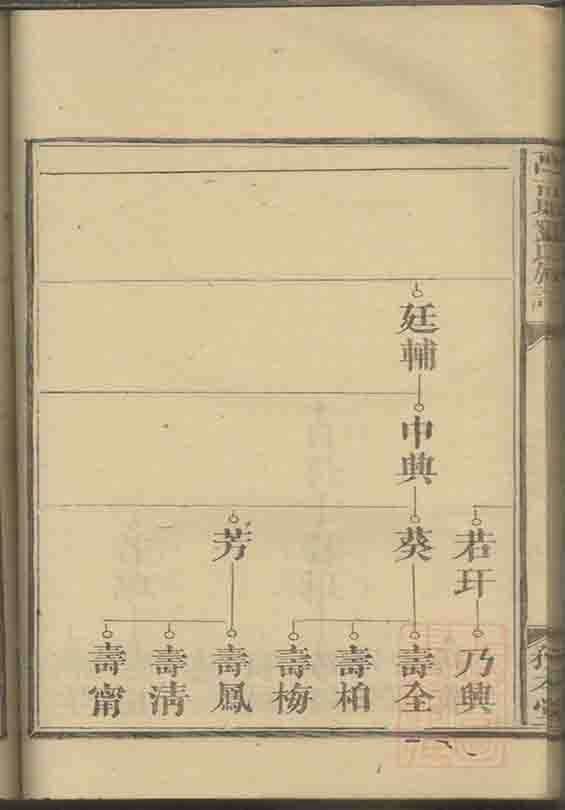 廷輔
中典
葵
芳
若玕
乃興
壽全
壽柏
壽梅
壽鳳
壽清
壽甯